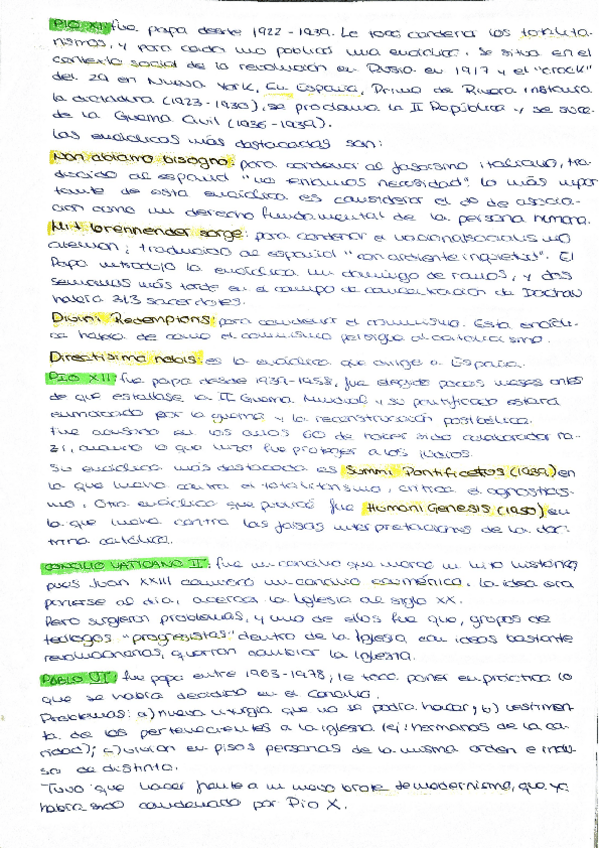 PIO XI: fue papa desde 1922-1939. Le tocó condenar los totalita-
rismos, y para cada uno publicó una encíclica. Se situa en el
contexto social de la revolución en Rusia en 1917 y el "crack"
del 29 en Nueva York. En España, Primo de Rivera instaura
la dictadura (1923-1930), se proclama la II República y se suce-
de la Guerra Civil (1936-1939).
Las encíclicas más destacadas son:
Non abiamo bisogno: para condenar al fascismo italiano, tra-
ducido al español "no tenemos necesidad". Lo más impor
tante de esta encíclica es considerar el dº de asocia-
ción como un derecho fundamental de la persona humana.
Mit brennender sorge: para condenar el nacionalsocialismo
alemán; traducido al español "con ardiente inquietud". El
Papa introdujo la encíclica un domingo de ramos, y dos
semanas más tarde en el campo de concentración de Dachau
había 313 sacerdotes.
Divini Redemptionis: para condenar el comunismo. Esta encícli-
ca habla de como el comunismo persigue al catolicismo.
Directisima nobis: es la encíclica que dirige a España.
PIO XII: fue papa desde 1939-1958, fue elegido pocos meses antes
de que estallase la II Guerra Mundial y su pontificado estará
enmarcado por la guerra y la reconstrucción postbélica.
Fue acusado en los años 60 de haber sido colaborador na-
zi, cuando lo que hizo fue proteger a los judíos.
Su encíclica más destacada es Summi Pontificatus (1939) en
la que lucha contra el totalitarismo, critica el agnosticis-
mo. Otra encíclica que publicó fue Humani Genesis (1950) en
la que lucha contra las falsas interpretaciones de la doc-
trina católica.
CONCILIO VATICANO II: fue un concilio que marcó un hito histórico,
pues Juan XXIII convocó un concilio ecuménico. La idea era
ponerse al día, acercar la Iglesia al siglo XX.
Pero surgieron problemas, y uno de ellos fue que, grupos de
teólogos "progresistas" dentro de la Iglesia con ideas bastante
revolucionarias, querían cambiar la Iglesia.
PABLO VI: fue papa entre 1963-1978; le tocó poner en práctica lo
que se había decidido en el Concilio.
Problemas: a) nueva liturgia que no se podía hacer; b) vestimen-
ta de los pertenecientes a la iglesia (ej: hermanas de la ca-
ridad); c) vivían en pisos personas de la misma orden e inclu-
so de distinto.
Tuvo que hacer frente a un nuevo brote de modernismo, que ya
había sido condenado por Pio X.